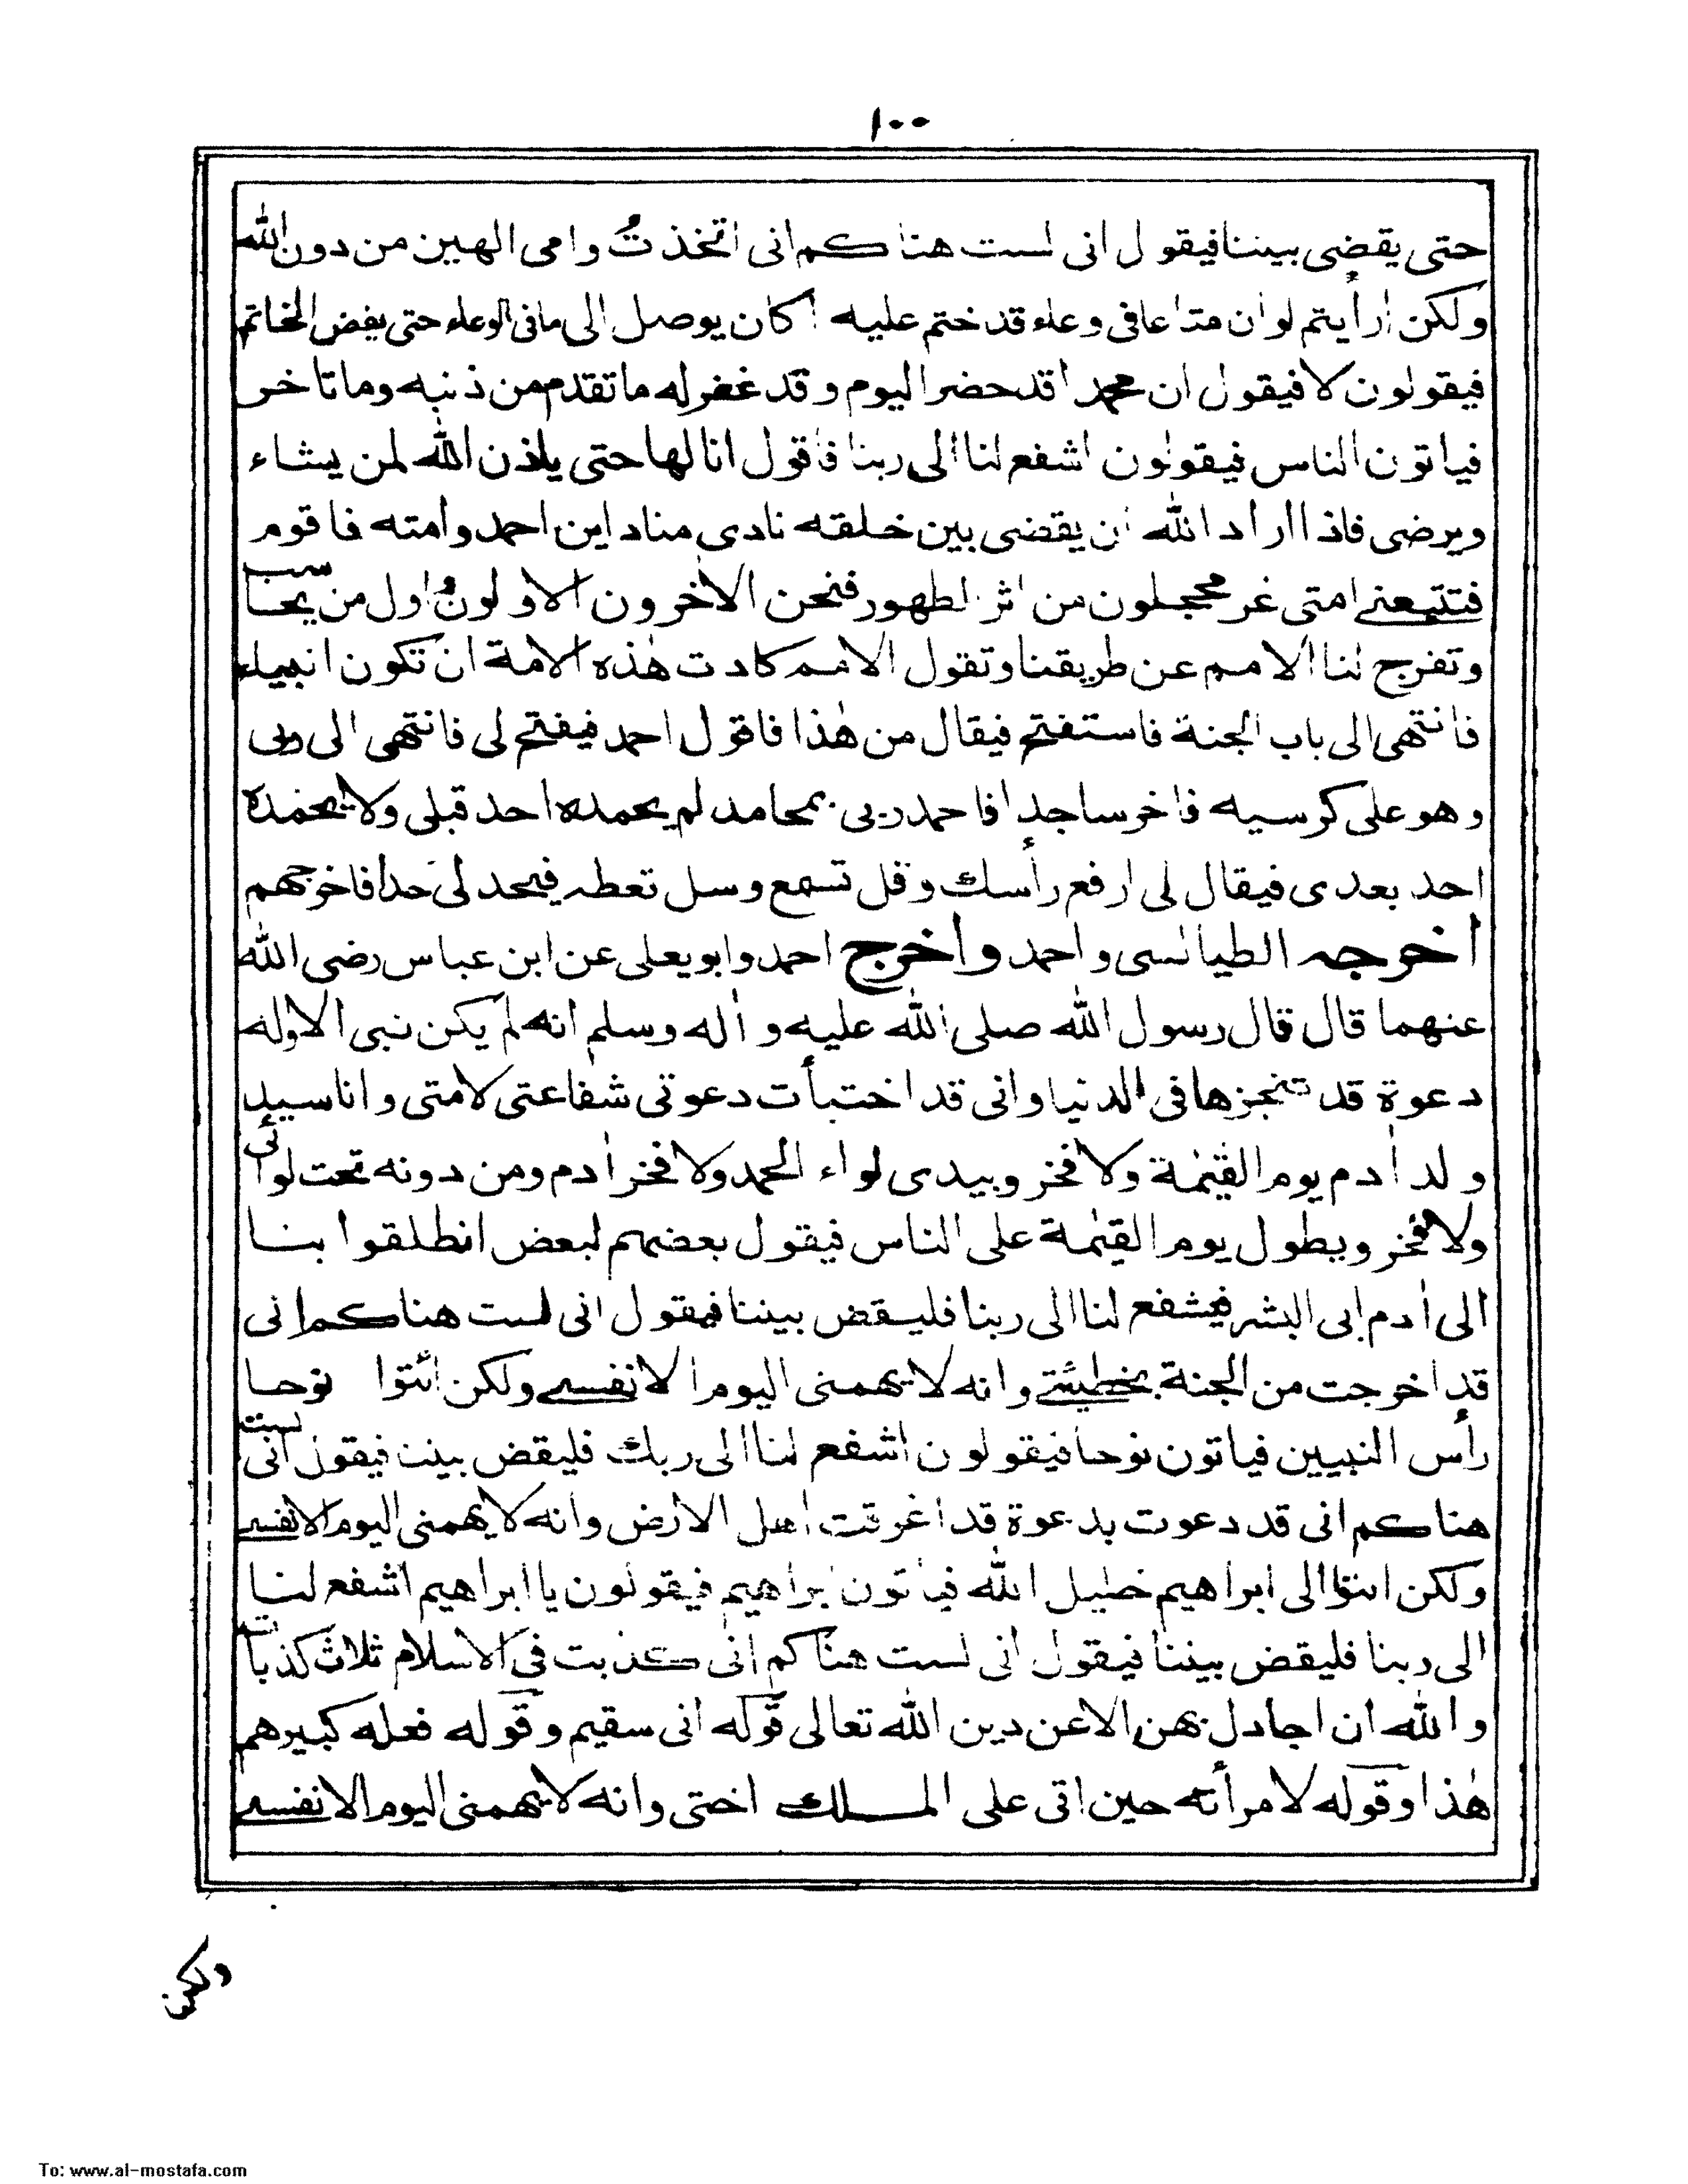 ١٠٠
حتى يقضى بيننا فيقول انى لست هنا كم انى اتخذتُ وامى الهين من دون الله
ولكن أرأيتم لوان متاعا فى وعاء قد ختم عليه اكان يوصل الى ما فى الوعاء حتى يفض الخاتم
فيقولون لا فيقول ان محمدا قد حضر اليوم وقد غفر له ما تقدم من ذنبه وما تاخر
فياتون الناس فيقولون اشفع لنا الى ربنا فاقول انا لها حتى ياذن الله لمن يشاء
ويرضى فاذا اراد الله ان يقضى بين خلقه نادى مناد اين احمد وامته فاقوم
فتتبعنے امتى غر محجلون من اثر الطهور فنحن الأخرون الاولونُ اول من يحاسب
وتفرج لنا الامم عن طريقنا وتقول الامم كادت هٰذه الامة ان تكون انبياء
فانتهى الى باب الجنة فاستفتح فيقال من هٰذا فاقول احمد فيفتح لى فانتهى الى ربى
وهو على كرسيه فاخر ساجدا فاحمد ربى بمحامد لم يحمده احد قبلى ولا يحمده
احد بعدى فيقال لى ارفع رأسك وقل تسمع وسل تعطه فيحد لى حدا فاخرجهم
اخرجه الطيالسى واحمد واخرج احمد وابو يعلى عن ابن عباس رضى الله
عنهما قال قال رسول الله صلى الله عليه و أله وسلم انه لم يكن نبى الا وله
دعوة قد تنجزها فى الدنيا وانى قد اختبأت دعوتى شفاعتى لامتى وانا سيد
ولد أدم يوم القيٰمة ولا فخر وبيدى لواء الحمد ولا فخر أدم ومن دونه تحت لوائى
ولا فخر ويطول يوم القيٰمة على الناس فيقول بعضهم لبعض انطلقوا بنا
الى أدم ابى البشر فيشفع لنا الى ربنا فليقض بيننا فيقول انى لست هناكم انى
قد اخرجت من الجنة بخطيئتے وانه لا يهمنى اليوم الا نفسے ولكن ائتوا نوحا
رأس النبيين فياتون نوحا فيقولون اشفع لنا الى ربك فليقض بيننا فيقول انى لست
هناكم انى قد دعوت بدعوة قد اغرقت اهل الارض وانه لا يهمنى اليوم الا نفسے
ولكن ائتوا الى ابراهيم خليل الله فياتون ابراهيم فيقولون يا ابراهيم اشفع لنا
الى ربنا فليقض بيننا فيقول انى لست هناكم انى كذبت فى الاسلام ثلاث كذبات
والله ان اجادل بهن الا عن دين الله تعالى قوله انى سقيم وقوله فعله كبيرهم
هٰذا وقوله لامرأته حين اتى على الملك اختى وانه لا يهمنى اليوم الا نفسے
ولكن
To: www.al-mostafa.com